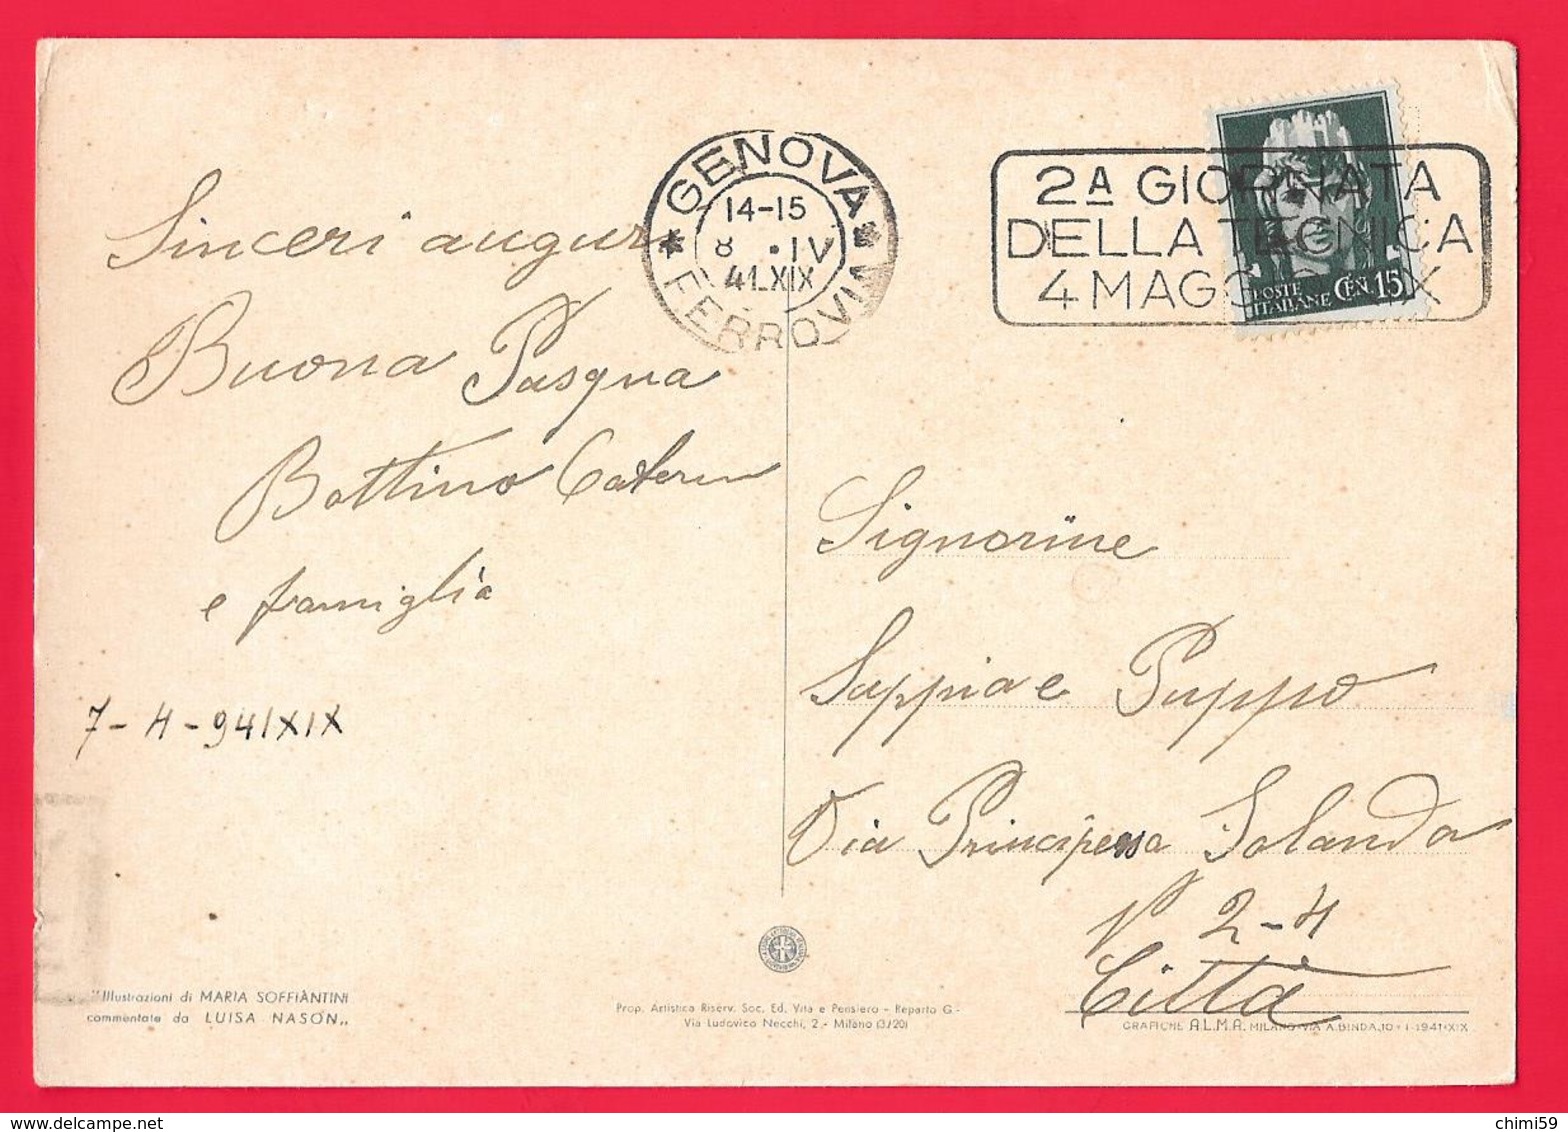 Sinceri auguri
Buona Pasqua
Bottino Caterina
e famiglia
7-4-941XIX
GENOVA
14-15
8 . IV
41.XIX
FERROVIA
2A GIORNATA
DELLA TECNICA
4 MAGGIO XIX
POSTE
ITALIANE CEN. 15
Signorine
Sappia e Puppo
Via Principessa Jolanda
N° 2-4
Città
"Illustrazioni di MARIA SOFFIANTINI
commentate da LUISA NASON„
Prop. Artistica Riserv. Soc. Ed. Vita e Pensiero - Reparto G -
Via Ludovico Necchi, 2 - Milano (3/20)
GRAFICHE A.L.M.A. MILANO-VIA A.BINDA,10-1-1941-XIX
chimi59